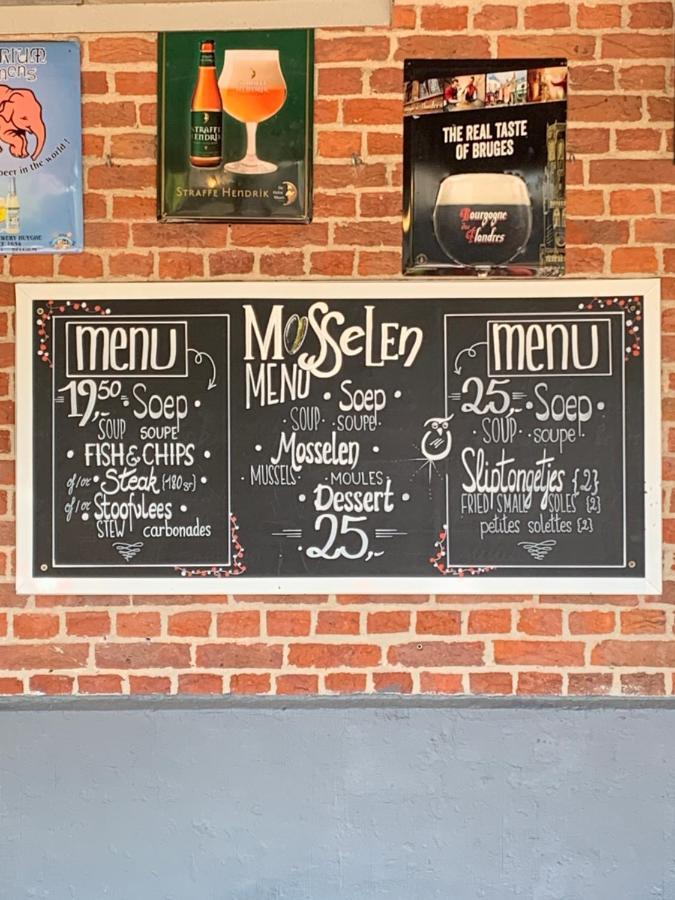 beer in the world!
STRAFFE HENDRIK
STRAFFE HENDRIK
THE REAL TASTE
OF BRUGES
Bourgogne
des
Flandres
menu
19,50 Soep
SOUP SOUPE
FISH & CHIPS
of/or Steak (180 gr)
of/or Stoofvlees
STEW carbonades
MOSSELEN
MENU
Soep
SOUP · soupe
Mosselen
MUSSELS · MOULES
Dessert
25,-
menu
25,- Soep
SOUP · soupe
Sliptongetjes {2}
FRIED SMALL SOLES {2}
petites solettes {2}